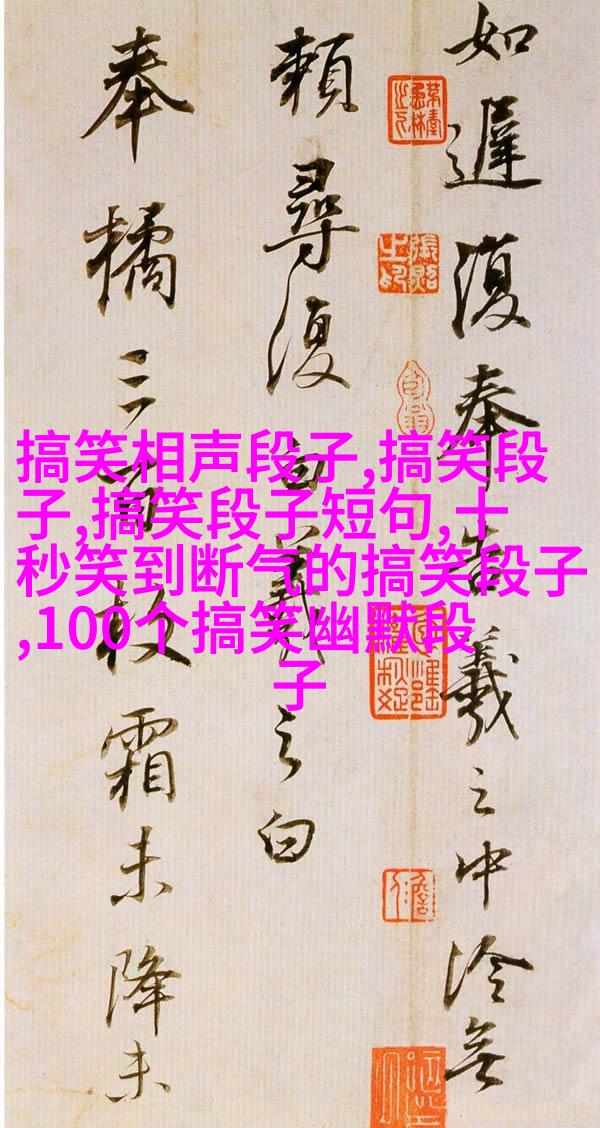 搞笑相声段子,搞笑段
子,搞笑段子短句,十
秒笑到断气的搞笑段子
,100个搞笑幽默段
子
如遲復奉告羲之中冷無
賴尋復白羲之白
奉橘三百枚霜未降未